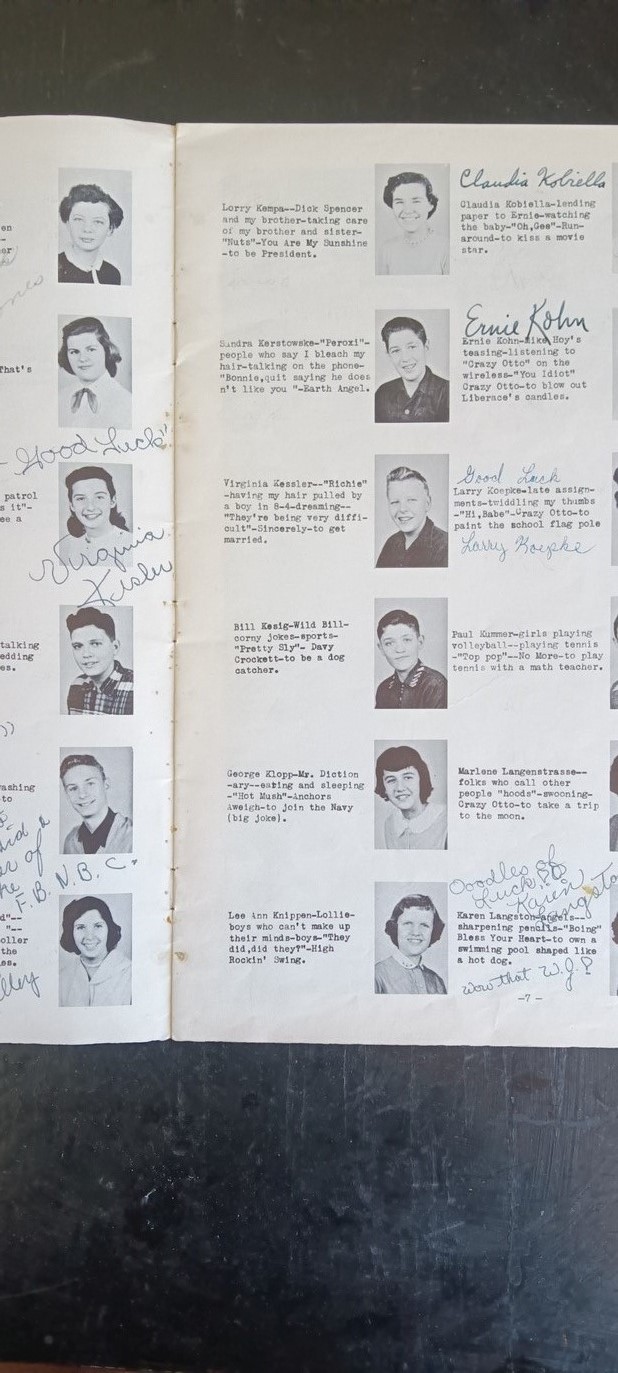 en
--
er
That's
- Good Luck!
patrol
s it"-
ee a
Virginia
Kesler
talking
edding
es.
ashing
to
did a
er of
he
F.B.N.B.C.
d"--
"--
oller
the
es.
Lorry Kempa--Dick Spencer
and my brother-taking care
of my brother and sister-
"Nuts"-You Are My Sunshine
-to be President.
Sandra Kerstowske-"Peroxi"-
people who say I bleach my
hair-talking on the phone-
"Bonnie,quit saying he does
n't like you "-Earth Angel.
Virginia Kessler--"Richie"
-having my hair pulled by
a boy in 8-4-dreaming--
"They're being very diffi-
cult"-Sincerely-to get
married.
Bill Kesig-Wild Bill-
corny jokes-sports-
"Pretty Sly"- Davy
Crockett-to be a dog
catcher.
George Klopp-Mr. Diction
-ary--eating and sleeping
-"Hot Mush"-Anchors
Aweigh-to join the Navy
(big joke).
Lee Ann Knippen-Lollie-
boys who can't make up
their minds-boys-"They
did,did they?"-High
Rockin' Swing.
Claudia Kobiella
Claudia Kobiella-lending
paper to Ernie-watching
the baby-"Oh,Gee"-Run-
around-to kiss a movie
star.
Ernie Kohn
Ernie Kohn-Mike Hoy's
teasing-listening to
"Crazy Otto" on the
wireless-"You Idiot"
Crazy Otto-to blow out
Liberace's candles.
Good Luck
Larry Koepke-late assign-
ments-twiddling my thumbs
-"Hi,Babe"-Crazy Otto-to
paint the school flag pole
Larry Koepke
Paul Kummer-girls playing
volleyball--playing tennis
-"Top pop"--No More-to play
tennis with a math teacher.
Marlene Langenstrasse--
folks who call other
people "hoods"-swooning-
Crazy Otto-to take a trip
to the moon.
Ooodles of
Luck!!
Karen
Langston
Karen Langston-angels--
sharpening pencils-"Boing"
Bless Your Heart-to own a
swimming pool shaped like
a hot dog.
Wow that W.J.!
-7-